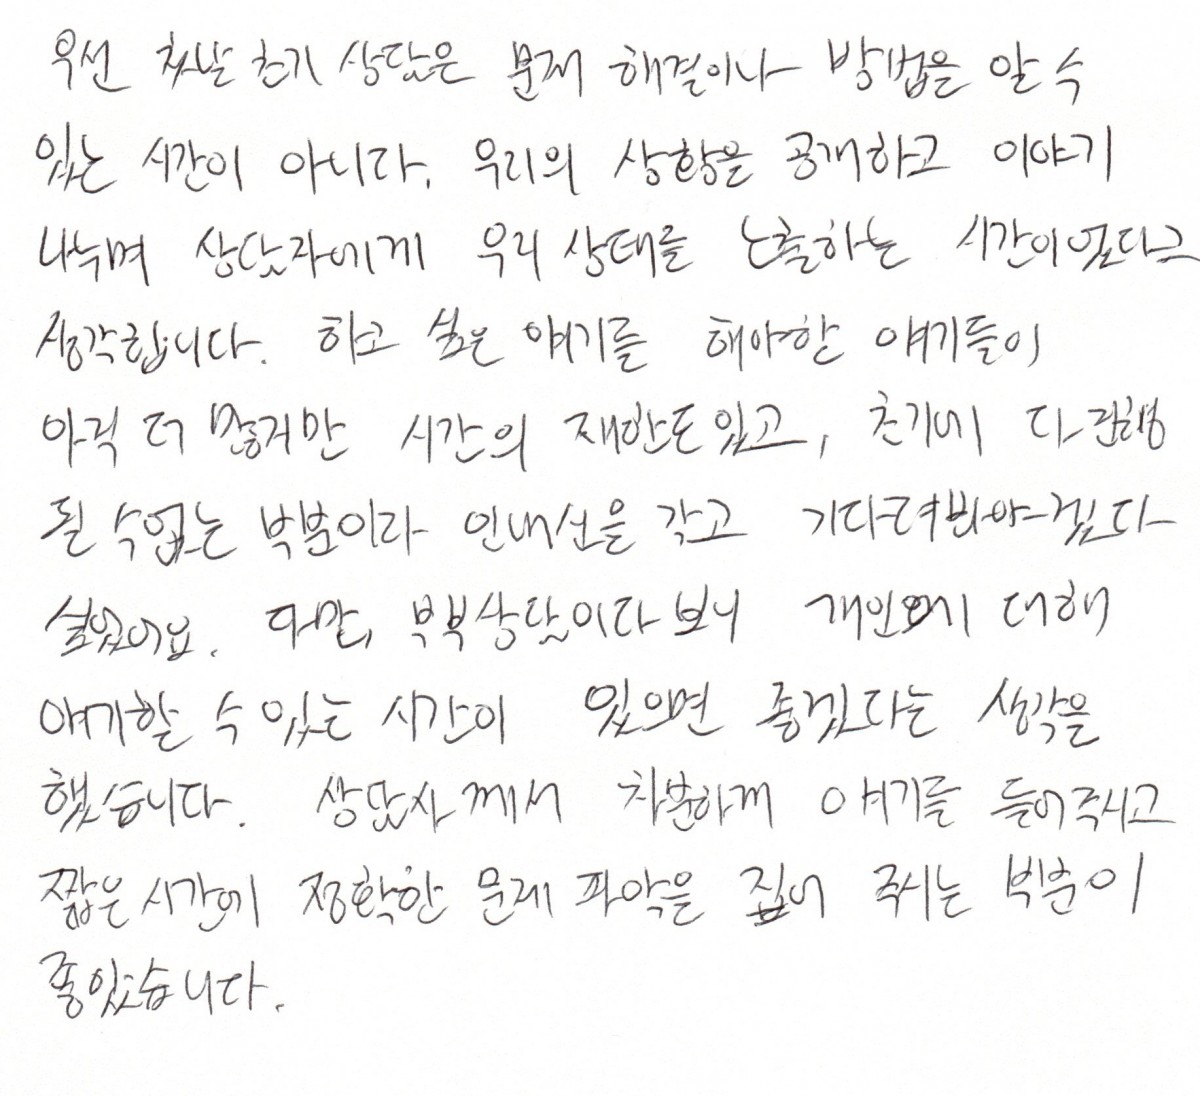 우선 첫날 초기 상담은 문제 해결이나 방법을 알 수
있는 시간이 아니다. 우리의 상황을 공개하고 이야기
나누며 상담자에게 우리 상태를 노출하는 시간이었다고
생각합니다. 하고 싶은 얘기를 해야한 얘기들이
아직 더 많지만 시간의 재한도 있고, 초기에 다 진행
될 수 없는 부분이라 인내심을 갖고 기다려봐야겠다
싶었어요. 다만, 부부상담이다 보니 개인에 대해
얘기할 수 있는 시간이 있으면 좋겠다는 생각을
했습니다. 상담사께서 차분하게 얘기를 들어주시고
짧은 시간에 정확한 문제 파악을 집어 주시는 부분이
좋았습니다.